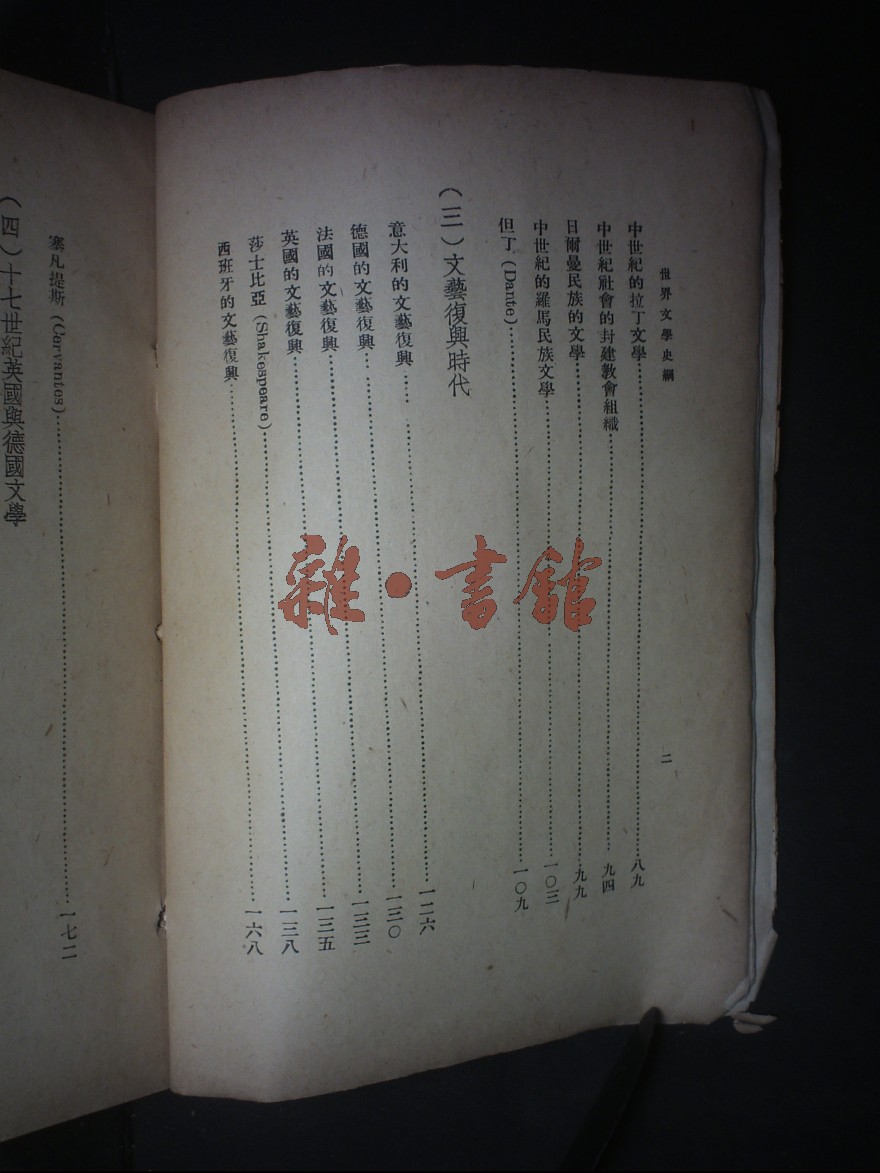 世界文學史綱 二
中世紀的拉丁文學……八九
中世紀社會的封建教會組織……九四
日爾曼民族的文學……九九
中世紀的羅馬民族文學……一〇三
但丁（Dante）……一〇九
（三）文藝復興時代
意大利的文藝復興……一二六
德國的文藝復興……一三〇
法國的文藝復興……一三三
英國的文藝復興……一三五
莎士比亞（Shakespeare）……一三八
西班牙的文藝復興……一六八
塞凡提斯（Cervantes）……一七二
（四）十七世紀英國與德國文學
雜·書館